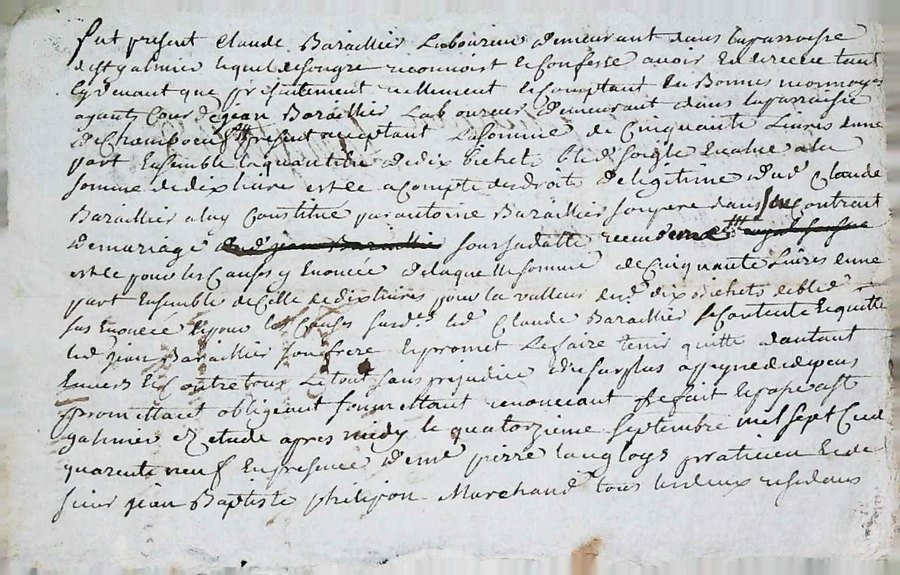 fut present Claude Baraillier Laboureur demeurant dans la parroisse
de st galmier lequel de son gre reconnoist et Confesse avoir Eu et receu tant
Cydevant que presentement reellement et Comptant En Bonnes monnoyes
ayants Cour de jean Baraillier Laboureur demeurant dans la parroisse
de Chamboeuf present acceptant La Somme de Cinquante Livres dune
part Ensemble la quantité de dix bichets bled soigle Evalué a la
somme de dix livres et ce a Compte des droits de legitime dud Claude
Baraillier a luy Constitué par antoine Baraillier son pere dans son Contract
de mariage dud jean Baraillier sous sa datte receu
et ce pour les Causes y Enoncée de laquelle somme de Cinquante Livres dune
part Ensemble de Celle de dix livres pour la valleur desd dix Bichets de bled
sus Enoncée Et pour les Causes surd. led Claude Baraillier se Contente Et quitte
led jean Baraillier son frere Et promet Le faire tenir quitte dautant
Envers Et Contre tous Le tout sans prejudice du surplus a peyne de depens
promettant obligeant soumettant renonceant &c fait Et passé a st
galmier Etude apres midy le quatorzieme septembre mil sept Cent
quarente neuf En presence de me pierre Langloys praticien Et de
sieur jean Baptiste philipon Marchand tous Les deux residans